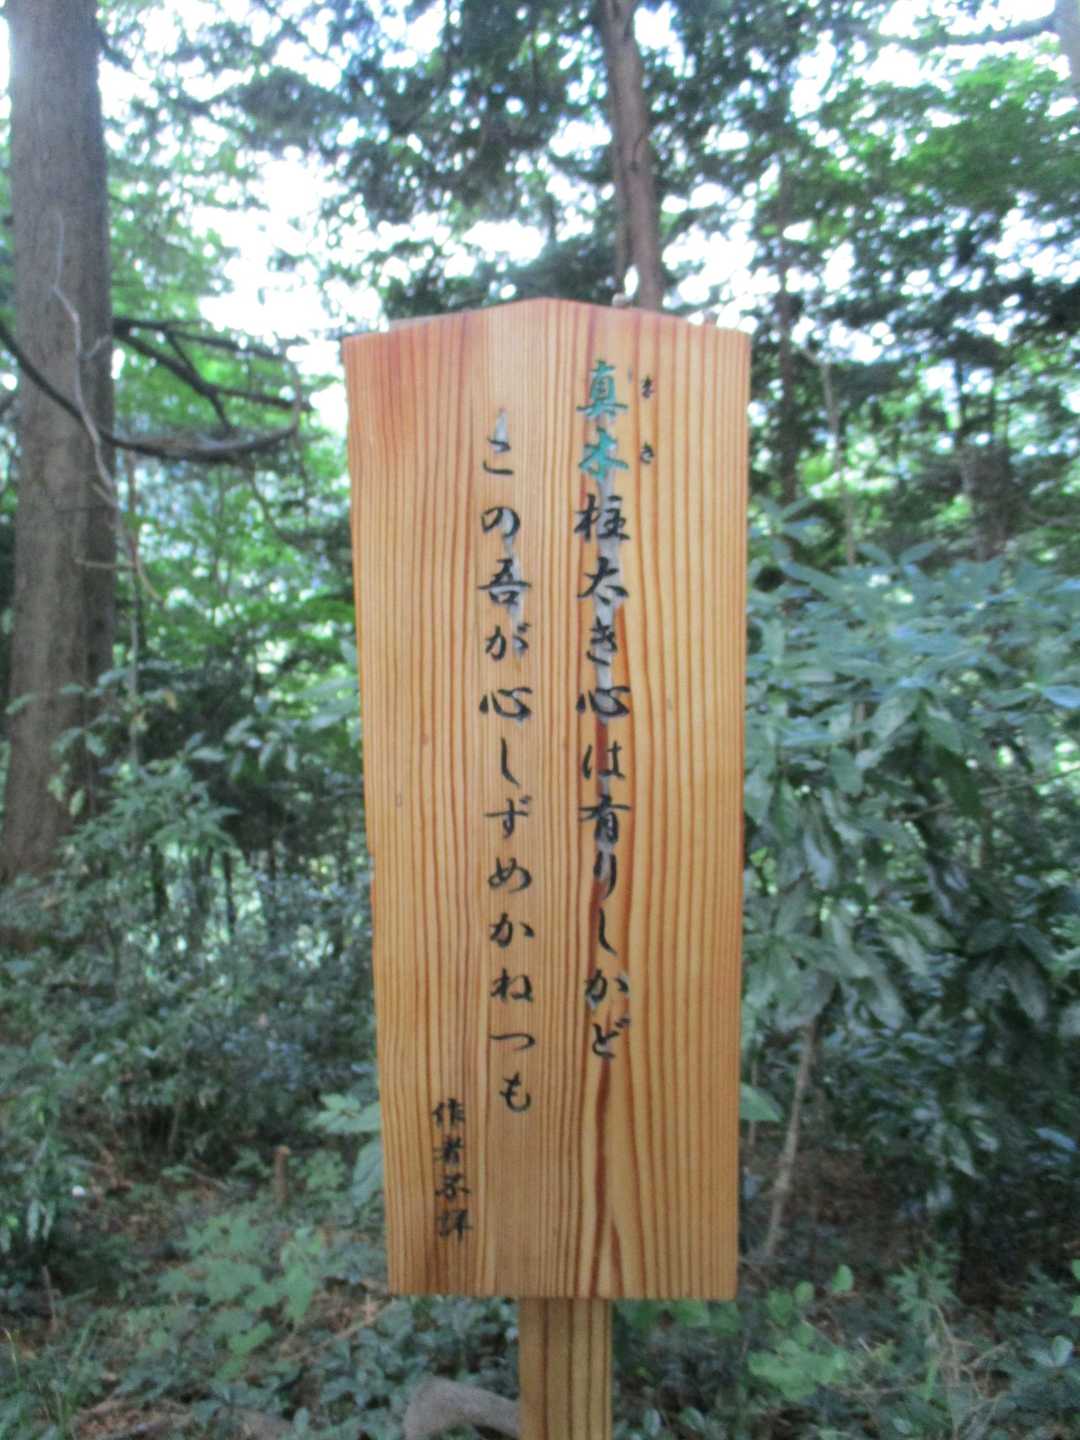 真木柱太き心は有りしかど
まき
この吾が心しずめかねつも
作者不詳